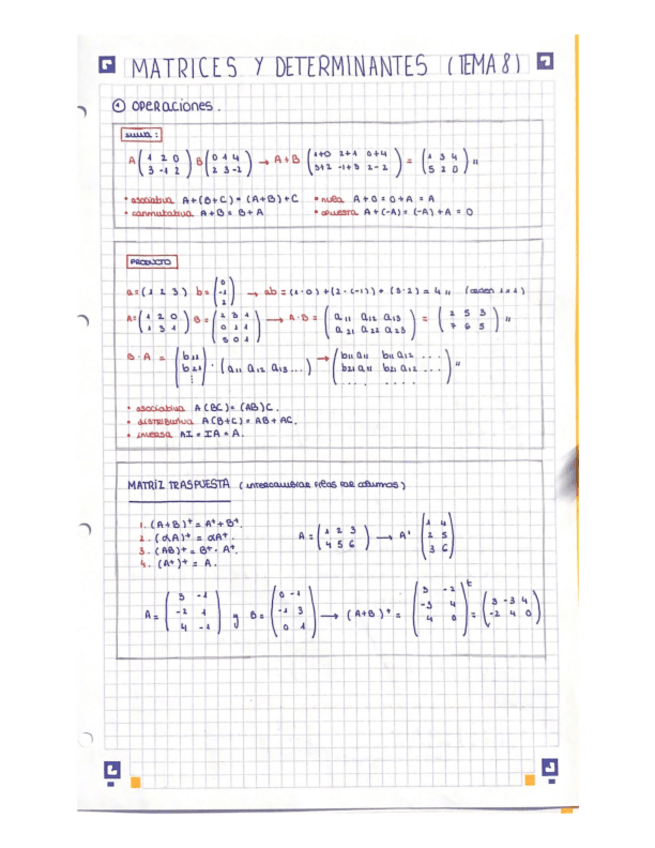 MATRICES Y DETERMINANTES (TEMA 8)
① OPERACIONES.
SUMA:
A (1 2 0 / 3 -1 2) B (0 1 4 / 2 3 -2) → A+B (1+0 2+1 0+4 / 3+2 -1+3 2-2) = (1 3 4 / 5 2 0) "
• asociativa A+(B+C) = (A+B)+C • nula A+0 = 0+A = A
• conmutativa A+B = B+A • opuesta A+(-A) = (-A)+A = 0
PRODUCTO
a = (1 2 3) b = (0 / -1 / 2) → ab = (1·0) + (2·(-1)) + (3·2) = 4 " (orden 1x1)
A = (1 2 0 / 1 3 1) B = (2 3 1 / 0 1 1 / 5 0 1) → A·B = (a11 a12 a13 / a21 a22 a23) = (2 5 3 / 7 6 5) "
B·A = (b11 / b21 / ⋮) · (a11 a12 a13 ...) → (b11a11 b11a12 ... / b21a11 b21a12 ... / ... ...) "
• asociativa A(BC) = (AB)C.
• DISTRIBUTIVA A(B+C) = AB + AC.
• inversa AI = IA = A.
MATRIZ TRASPUESTA (intercambiar filas por columnas)
1. (A+B)ᵗ = Aᵗ + Bᵗ.
2. (αA)ᵗ = αAᵗ.
3. (AB)ᵗ = Bᵗ · Aᵗ.
4. (Aᵗ)ᵗ = A.
A = (1 2 3 / 4 5 6) → Aᵗ (1 4 / 2 5 / 3 6)
A = (3 -1 / -2 1 / 4 -1) y B = (0 -1 / -1 3 / 0 1) → (A+B)ᵗ = (3 -2 / -3 4 / 4 0)ᵗ = (3 -3 4 / -2 4 0)